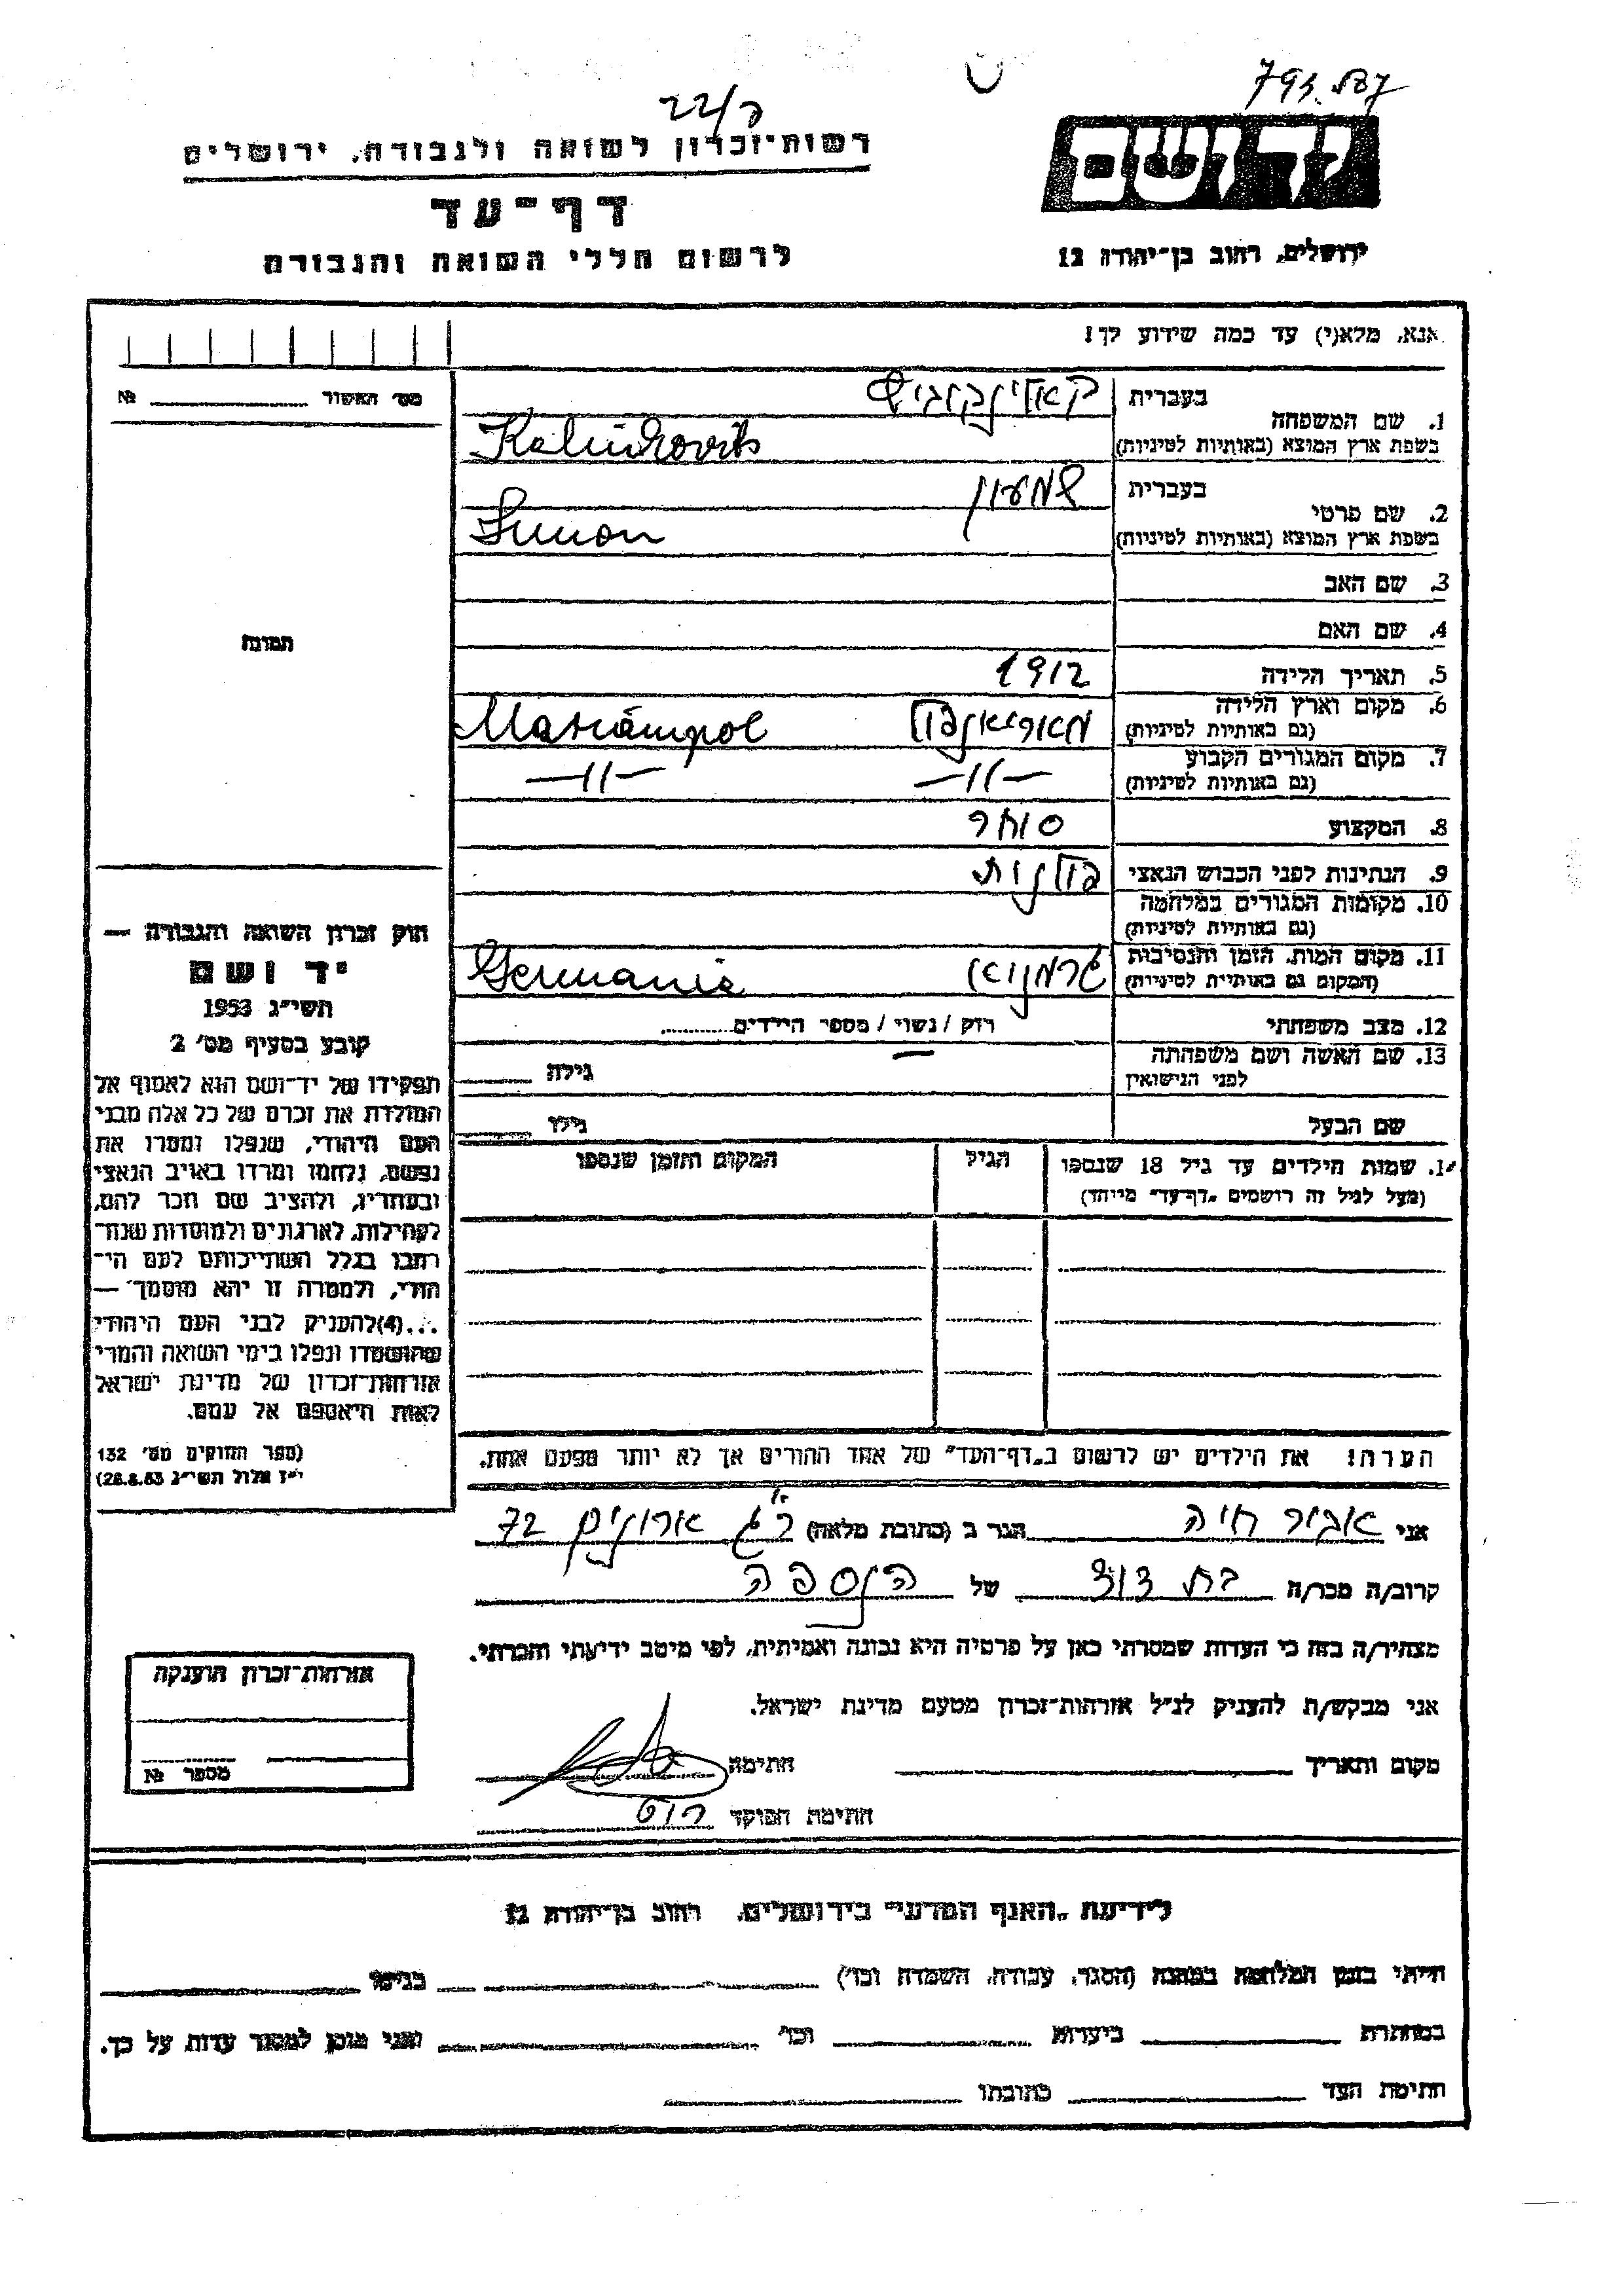 רשות־זכרון לשואה ולגבורה, ירושלים
דף־עד
לרשום חללי השואה והגבורה
יד ושם
ירושלים, רחוב בן־יהודה 12
אנא, מלא(י) עד כמה שידוע לך!
מס' האשור № 
1. שם המשפחה
בעברית
קאלינקוביץ
בשפת ארץ המוצא (באותיות לטיניות)
Kalinkovits
2. שם פרטי
בעברית
שמעון
בשפת ארץ המוצא (באותיות לטיניות)
Simon
3. שם האב
4. שם האם
5. תאריך הלידה 1912
6. מקום וארץ הלידה
(גם באותיות לטיניות)
מאריאמפול Mariampol
7. מקום המגורים הקבוע
(גם באותיות לטיניות)
—11— —11—
8. המקצוע סוחר
9. הנתינות לפני הכבוש הנאצי פולנית
10. מקומות המגורים במלחמה
(גם באותיות לטיניות)
11. מקום המות, הזמן והנסיבות
(המקום גם באותיות לטיניות)
גרמניא Germania
12. מצב משפחתי רוק / נשוי / מספר הילדים
13. שם האשה ושם משפחתה
לפני הנישואין
גילה
שם הבעל
גילו
1. שמות הילדים עד גיל 18 שנספו
(מעל לגיל זה רושמים „דף־עד" מיוחד)
הגיל
המקום והזמן שנספו
הערה! את הילדים יש לרשום ב„דף־העד" של אחד ההורים אך לא יותר מפעם אחת.
תמונה
חוק זכרון השואה והגבורה —
יד ושם
תשי"ג 1953
קובע בסעיף מס' 2
תפקידו של יד־ושם הוא לאסוף אל
המולדת את זכרם של כל אלה מבני
העם היהודי, שנפלו ומסרו את
נפשם, נלחמו ומרדו באויב הנאצי
ובעוזריו, ולהציב שם וזכר להם,
לקהילות, לארגונים ולמוסדות שנח־
רבו בגלל השתייכותם לעם הי־
הודי, ולמטרה זו יהא מוסמך —
...(4) להעניק לבני העם היהודי
שהושמדו ונפלו בימי השואה והמרי
אזרחות־זכרון של מדינת ישראל
לאות היאספם אל עמם.
(ספר החוקים מס' 132
י"ז אלול תשי"ג 28.8.53)
אני חיה הגר ב (כתובת מלאה) ר"ג 72
קרוב/ה מכר/ה בת דוד של הנספה
מצהיר/ה בזה כי העדות שמסרתי כאן על פרטיה היא נכונה ואמיתית, לפי מיטב ידיעתי והכרתי.
אני מבקש/ת להעניק לנ"ל אזרחות־זכרון מטעם מדינת ישראל.
מקום ותאריך חתימה
חתימת הפוקד
אזרחות־זכרון הוענקה
מספר №
לידיעת „האגף המדעי" בירושלים, רחוב בן־יהודה 12
הייתי בזמן המלחמה במחנה (הסגר, עבודה, השמדה וכו') בגיטו
במחתרת ביערות וכו' ואני מוכן למסור עדות על כך.
חתימת העד כתובתו